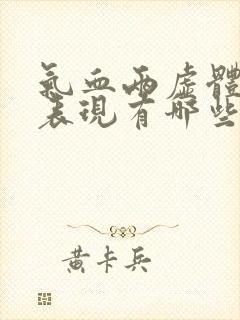 氣血兩虛體
表現有哪些
黃卡兵